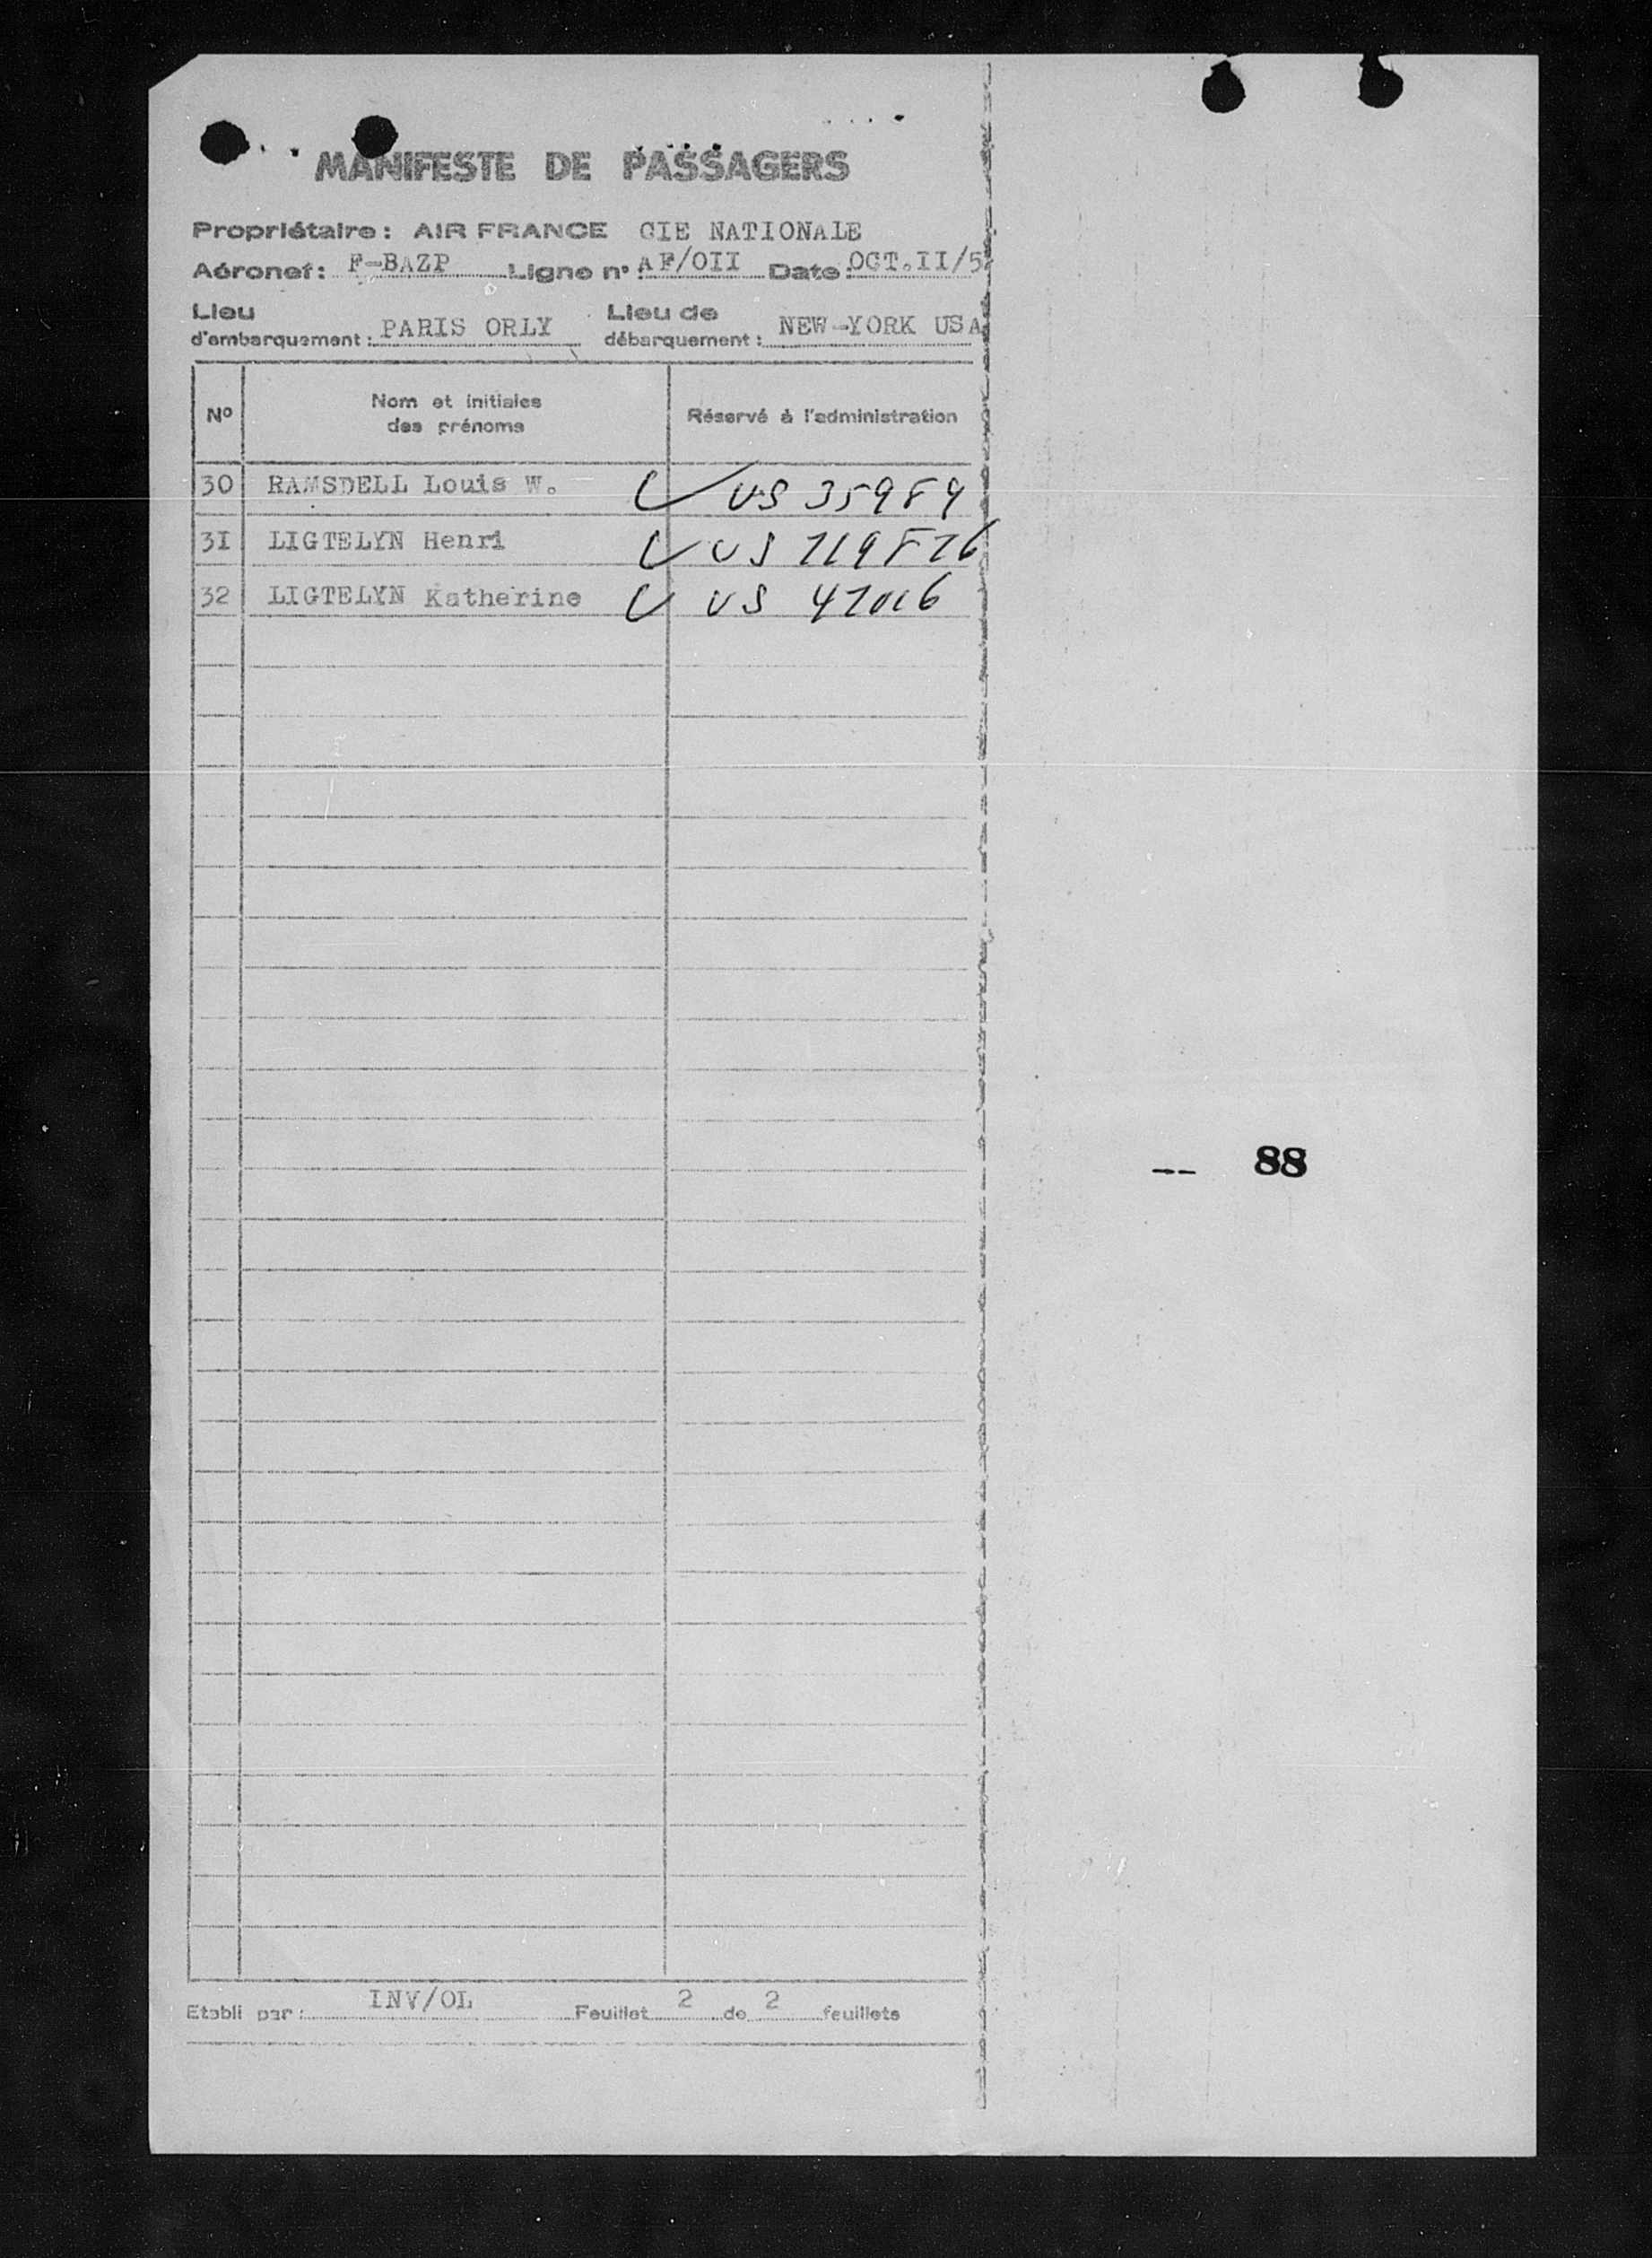 MANIFESTE DE PASSAGERS
Propriétaire: AIR FRANCE CIE NATIONALE
Aéronef: F-BAZP Ligne n° AF/OII Date OCT.II/5
Lieu d'embarquement: PARIS ORLY Lieu de débarquement: NEW-YORK USA
N° Nom et initiales des prénoms Réservé à l'administration
30 RAMSDELL Louis W. US 359F9
3I LIGTELYN Henri US 119F16
32 LIGTELYN Katherine US
Etabli par: INV/OL Feuillet 2 de 2 feuillets
-- 88